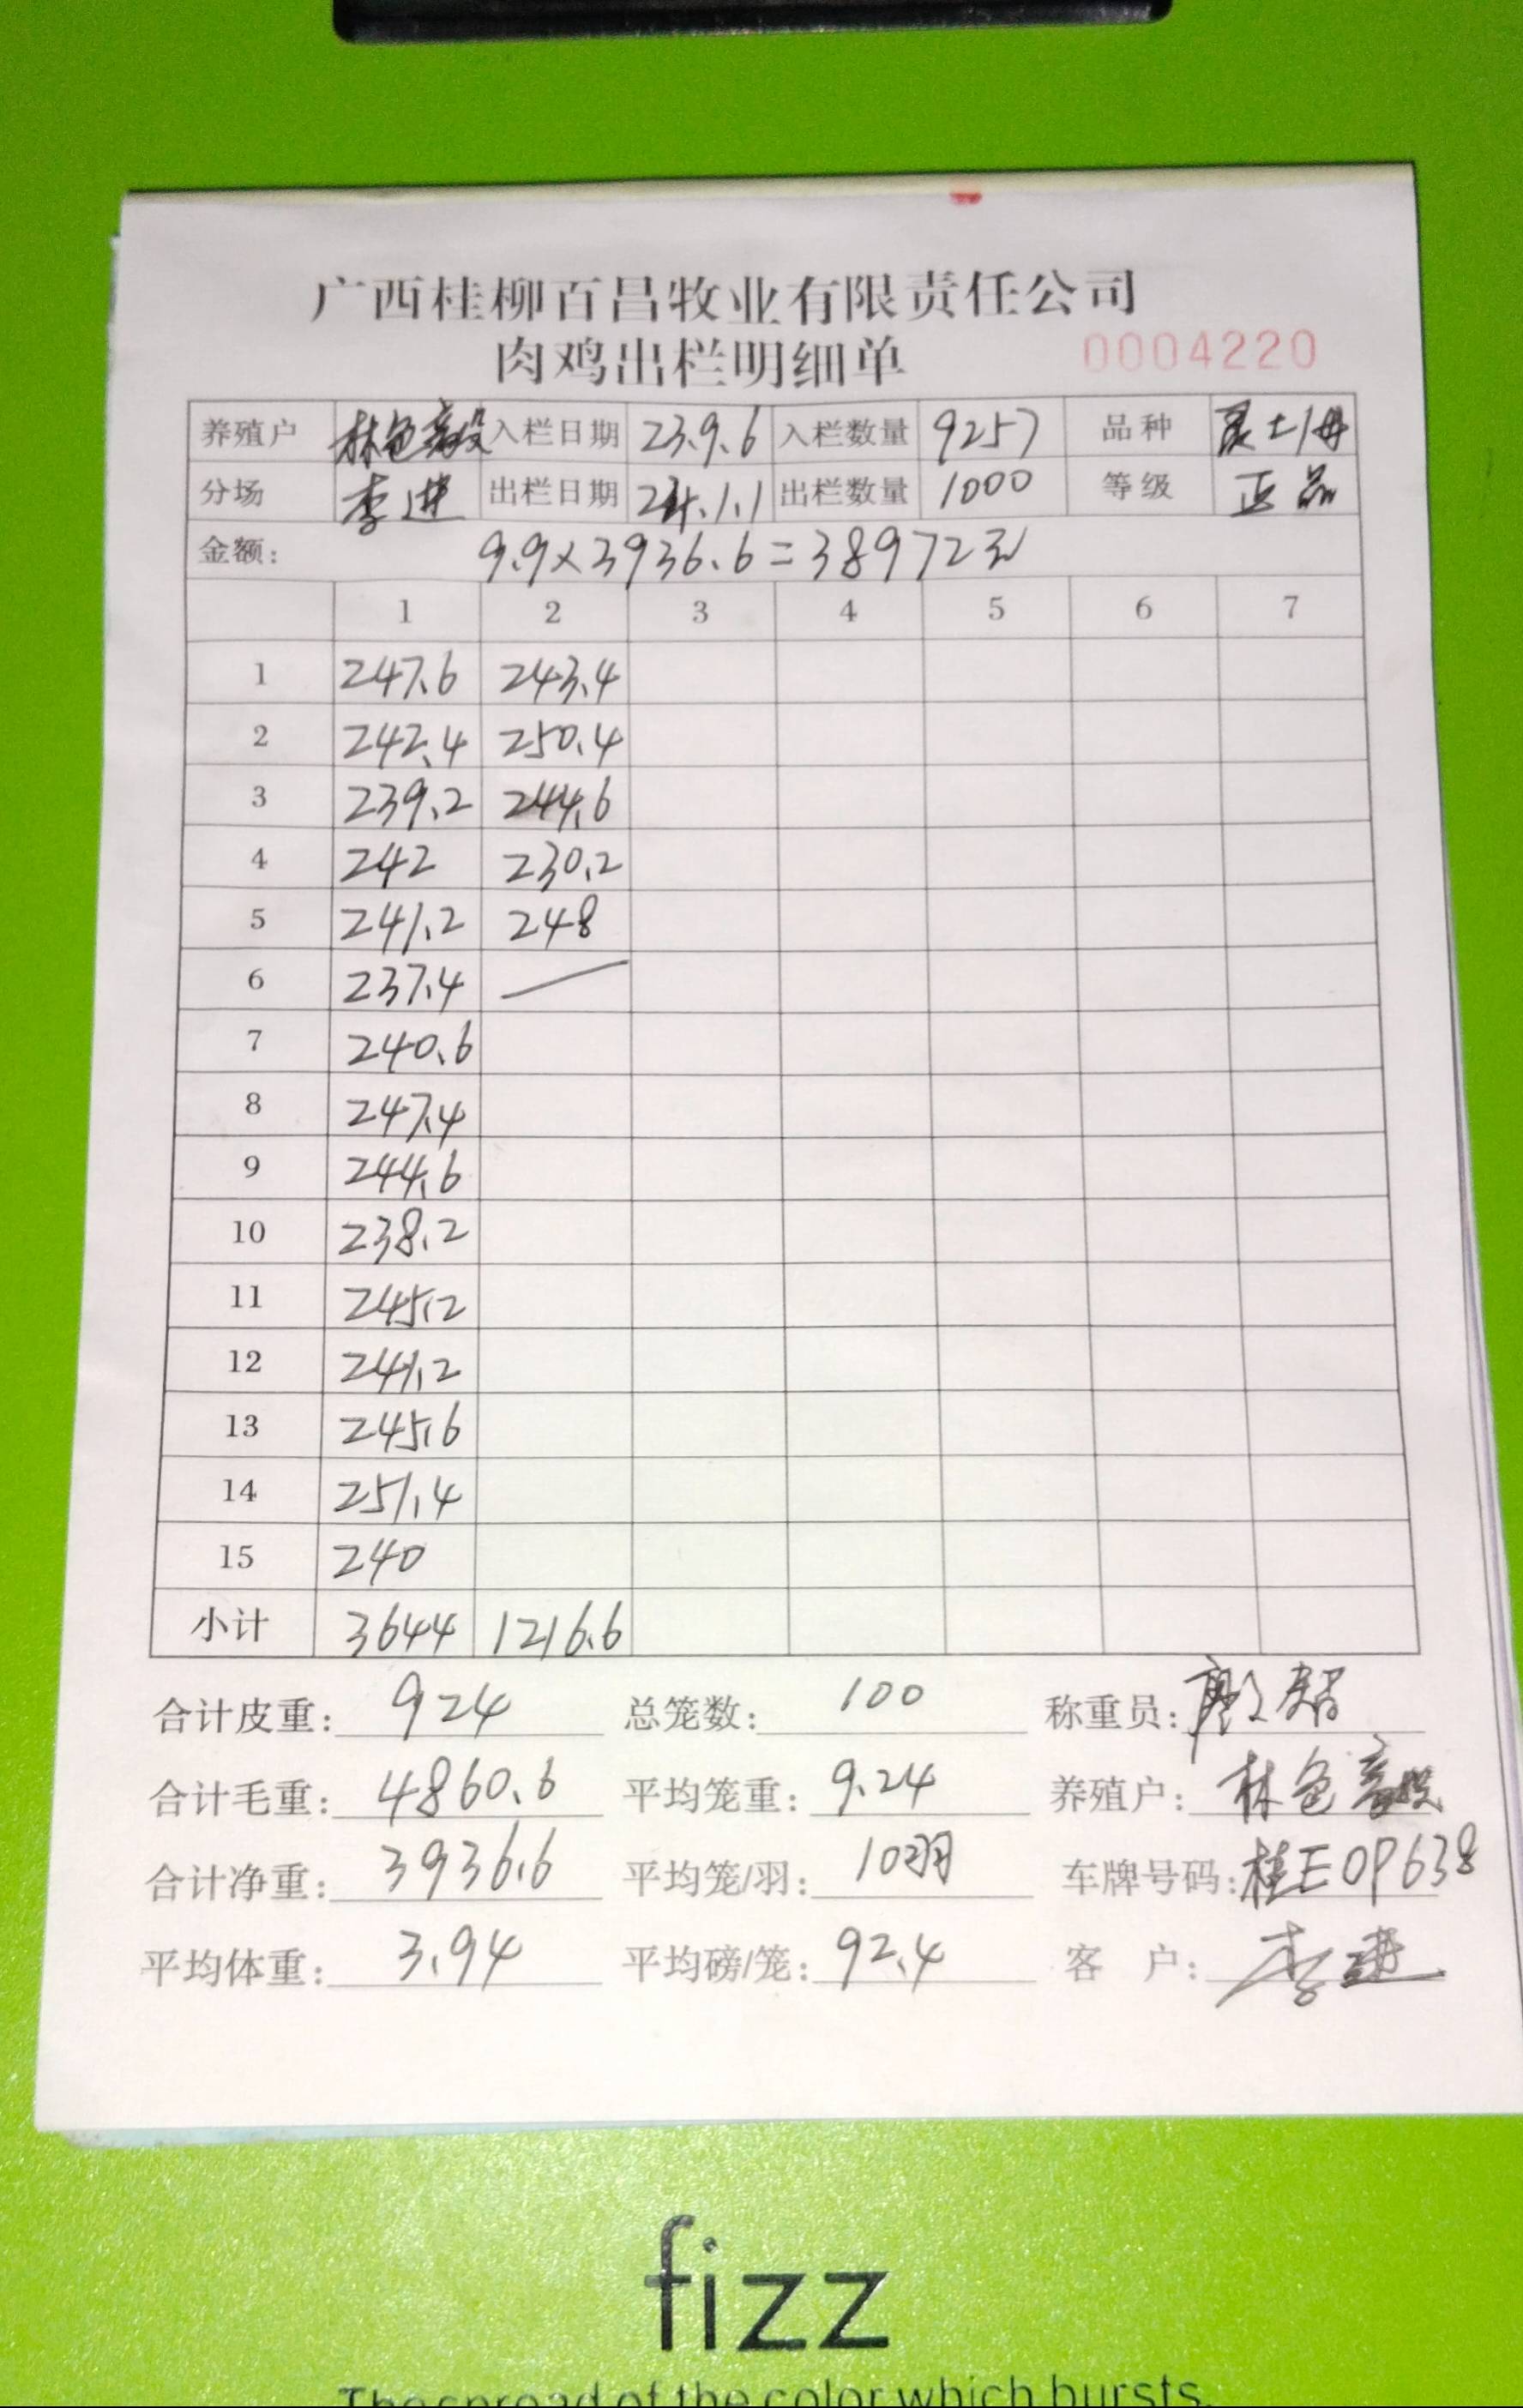 广西桂柳百昌牧业有限责任公司
肉鸡出栏明细单 0004220
养殖户 入栏日期 23.9.6 入栏数量 9257 品种
分场 李进 出栏日期 24.1.1 出栏数量 1000 等级 正品
金额: 9.9×3936.6=38972元
1 2 3 4 5 6 7
1 247.6 243.4
2 242.4 250.4
3 239.2 244.6
4 242 230.2
5 241.2 248
6 237.4
7 240.6
8 247.4
9 244.6
10 238.2
11 245.2
12 241.2
13 245.6
14 251.4
15 240
小计 3644 1216.6
合计皮重: 924 总笼数: 100 称重员:
合计毛重: 4860.6 平均笼重: 9.24 养殖户:
合计净重: 3936.6 平均笼/羽: 10羽 车牌号码: 桂E0P638
平均体重: 3.94 平均磅/笼: 92.4 客户: 李进
fizz
The spread of the color which bursts.